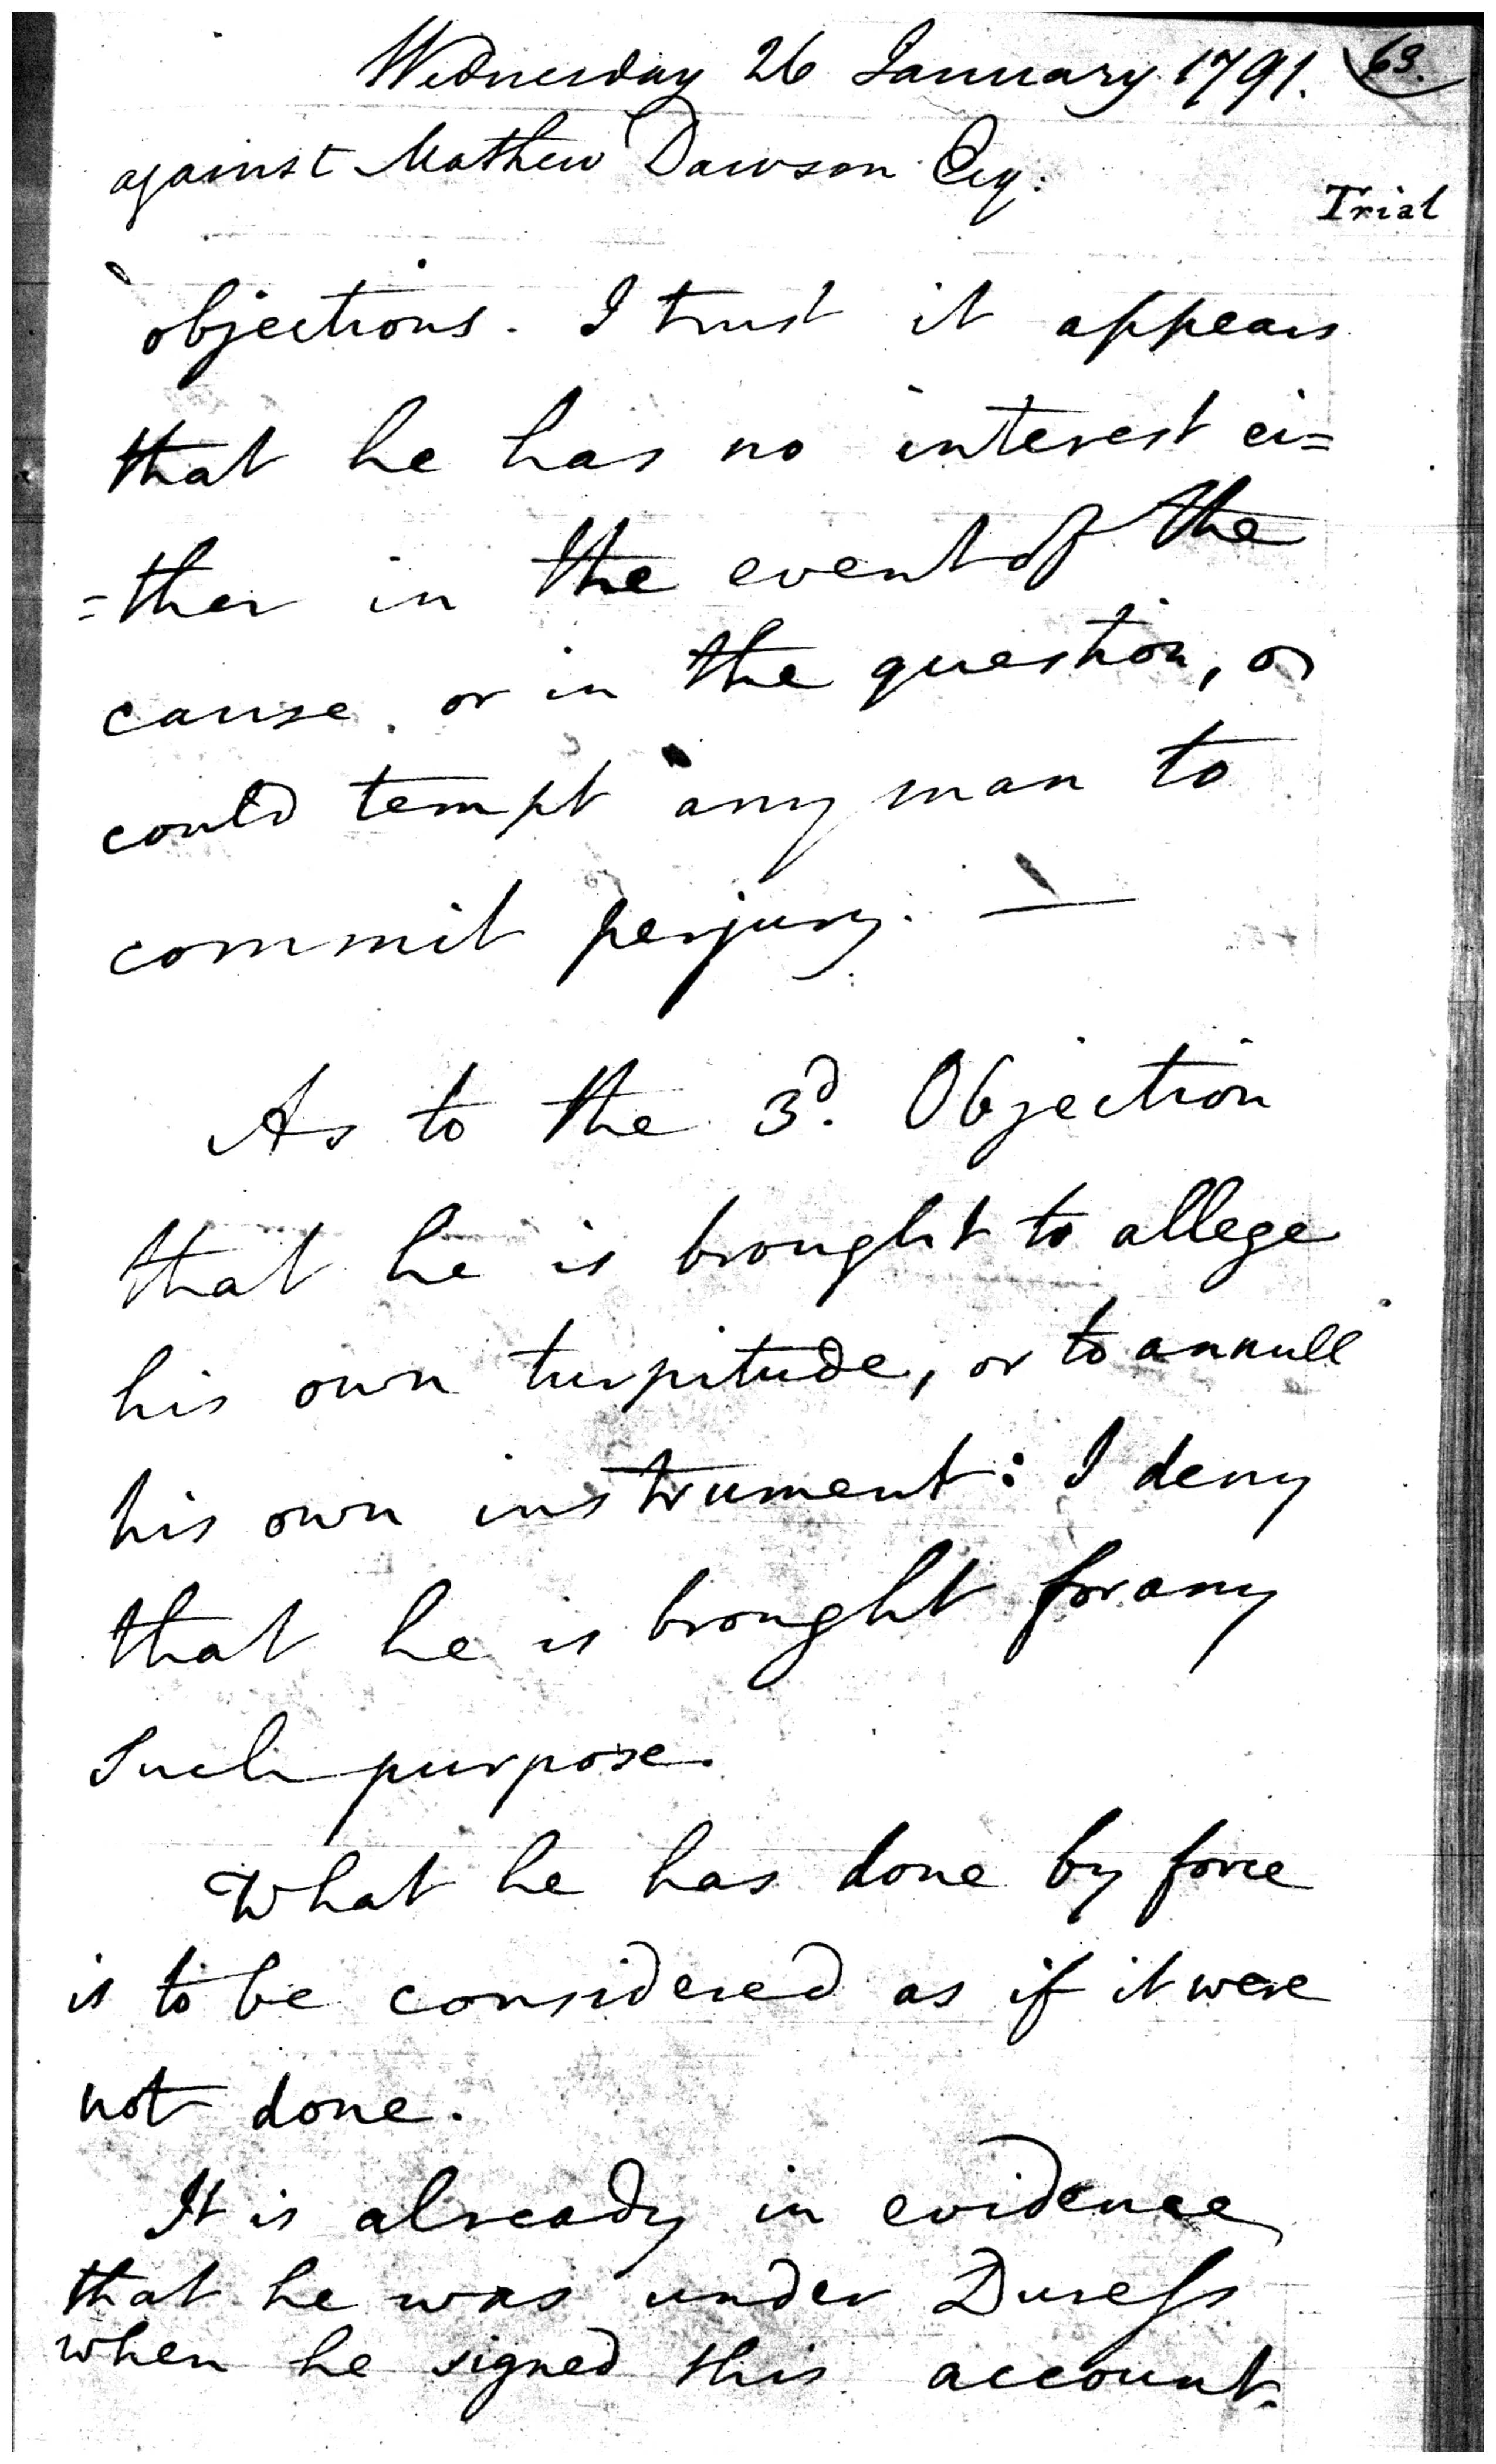 Wednesday 26 January 1791. 63.
against Mathew Dawson Esq:
Trial
objections. I trust it appears
that he has no interest ei=
=ther in the event of the
cause or in the question, or
could tempt any man to
commit perjury. —
As to the 3d. Objection
that he is brought to allege
his own turpitude, or to annull
his own instrument: I deny
that he is brought for any
Such purpose.
What he has done by force
is to be considered as if it were
not done.
It is already in evidence
that he was under Duress
when he signed this account.